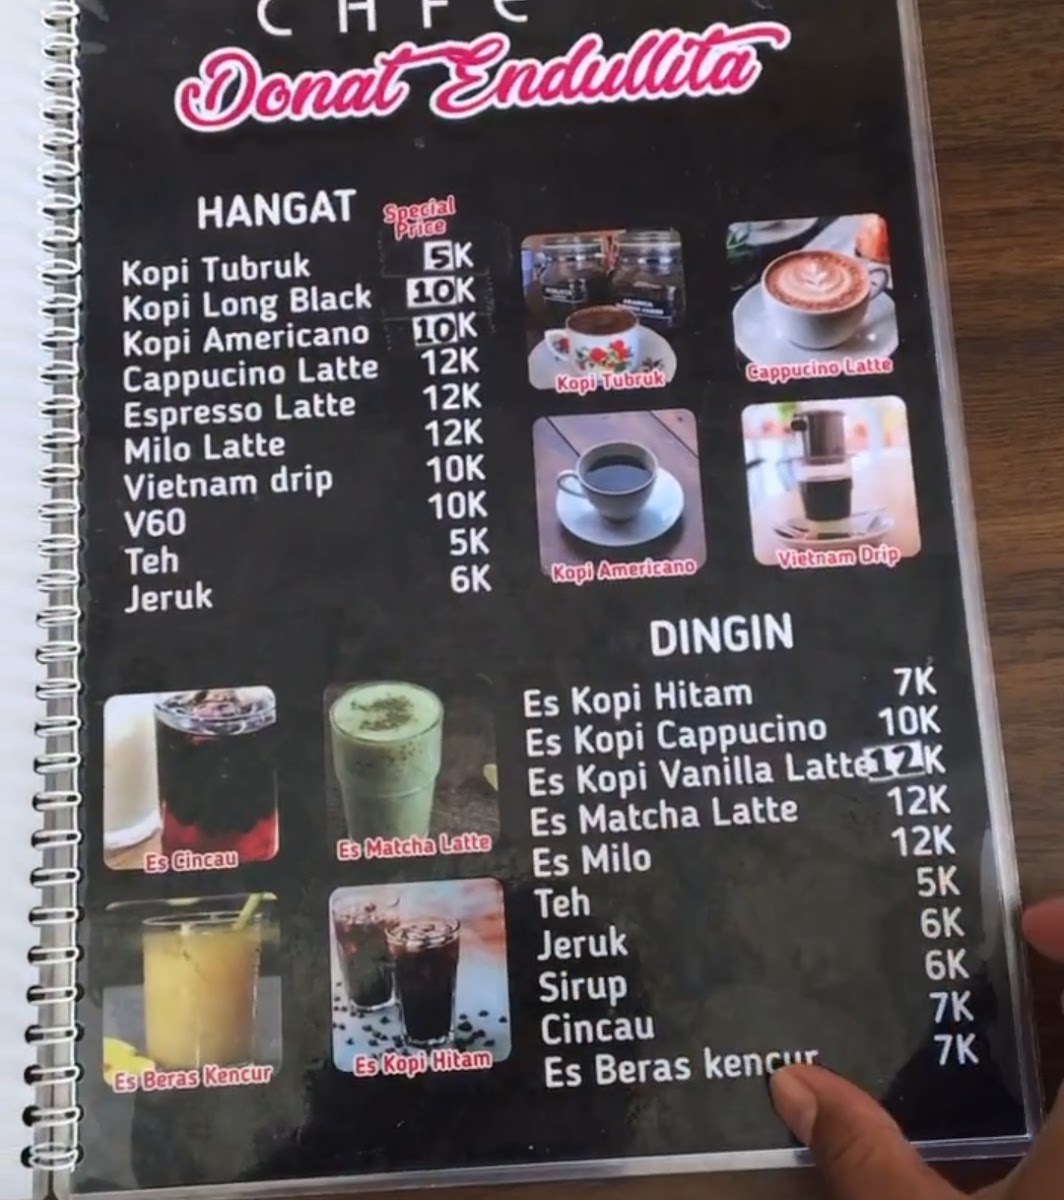 CAFE
Donat Endullita
HANGAT
Special
Price
Kopi Tubruk 5K
Kopi Long Black 10K
Kopi Americano 10K
Cappucino Latte 12K
Espresso Latte 12K
Milo Latte 12K
Vietnam drip 10K
V60 10K
Teh 5K
Jeruk 6K
Kopi Tubruk
Cappucino Latte
Kopi Americano
Vietnam Drip
DINGIN
Es Kopi Hitam 7K
Es Kopi Cappucino 10K
Es Kopi Vanilla Latte 12K
Es Matcha Latte 12K
Es Milo 12K
Teh 5K
Jeruk 6K
Sirup 6K
Cincau 7K
Es Beras kencur 7K
Es Cincau
Es Matcha Latte
Es Beras Kencur
Es Kopi Hitam